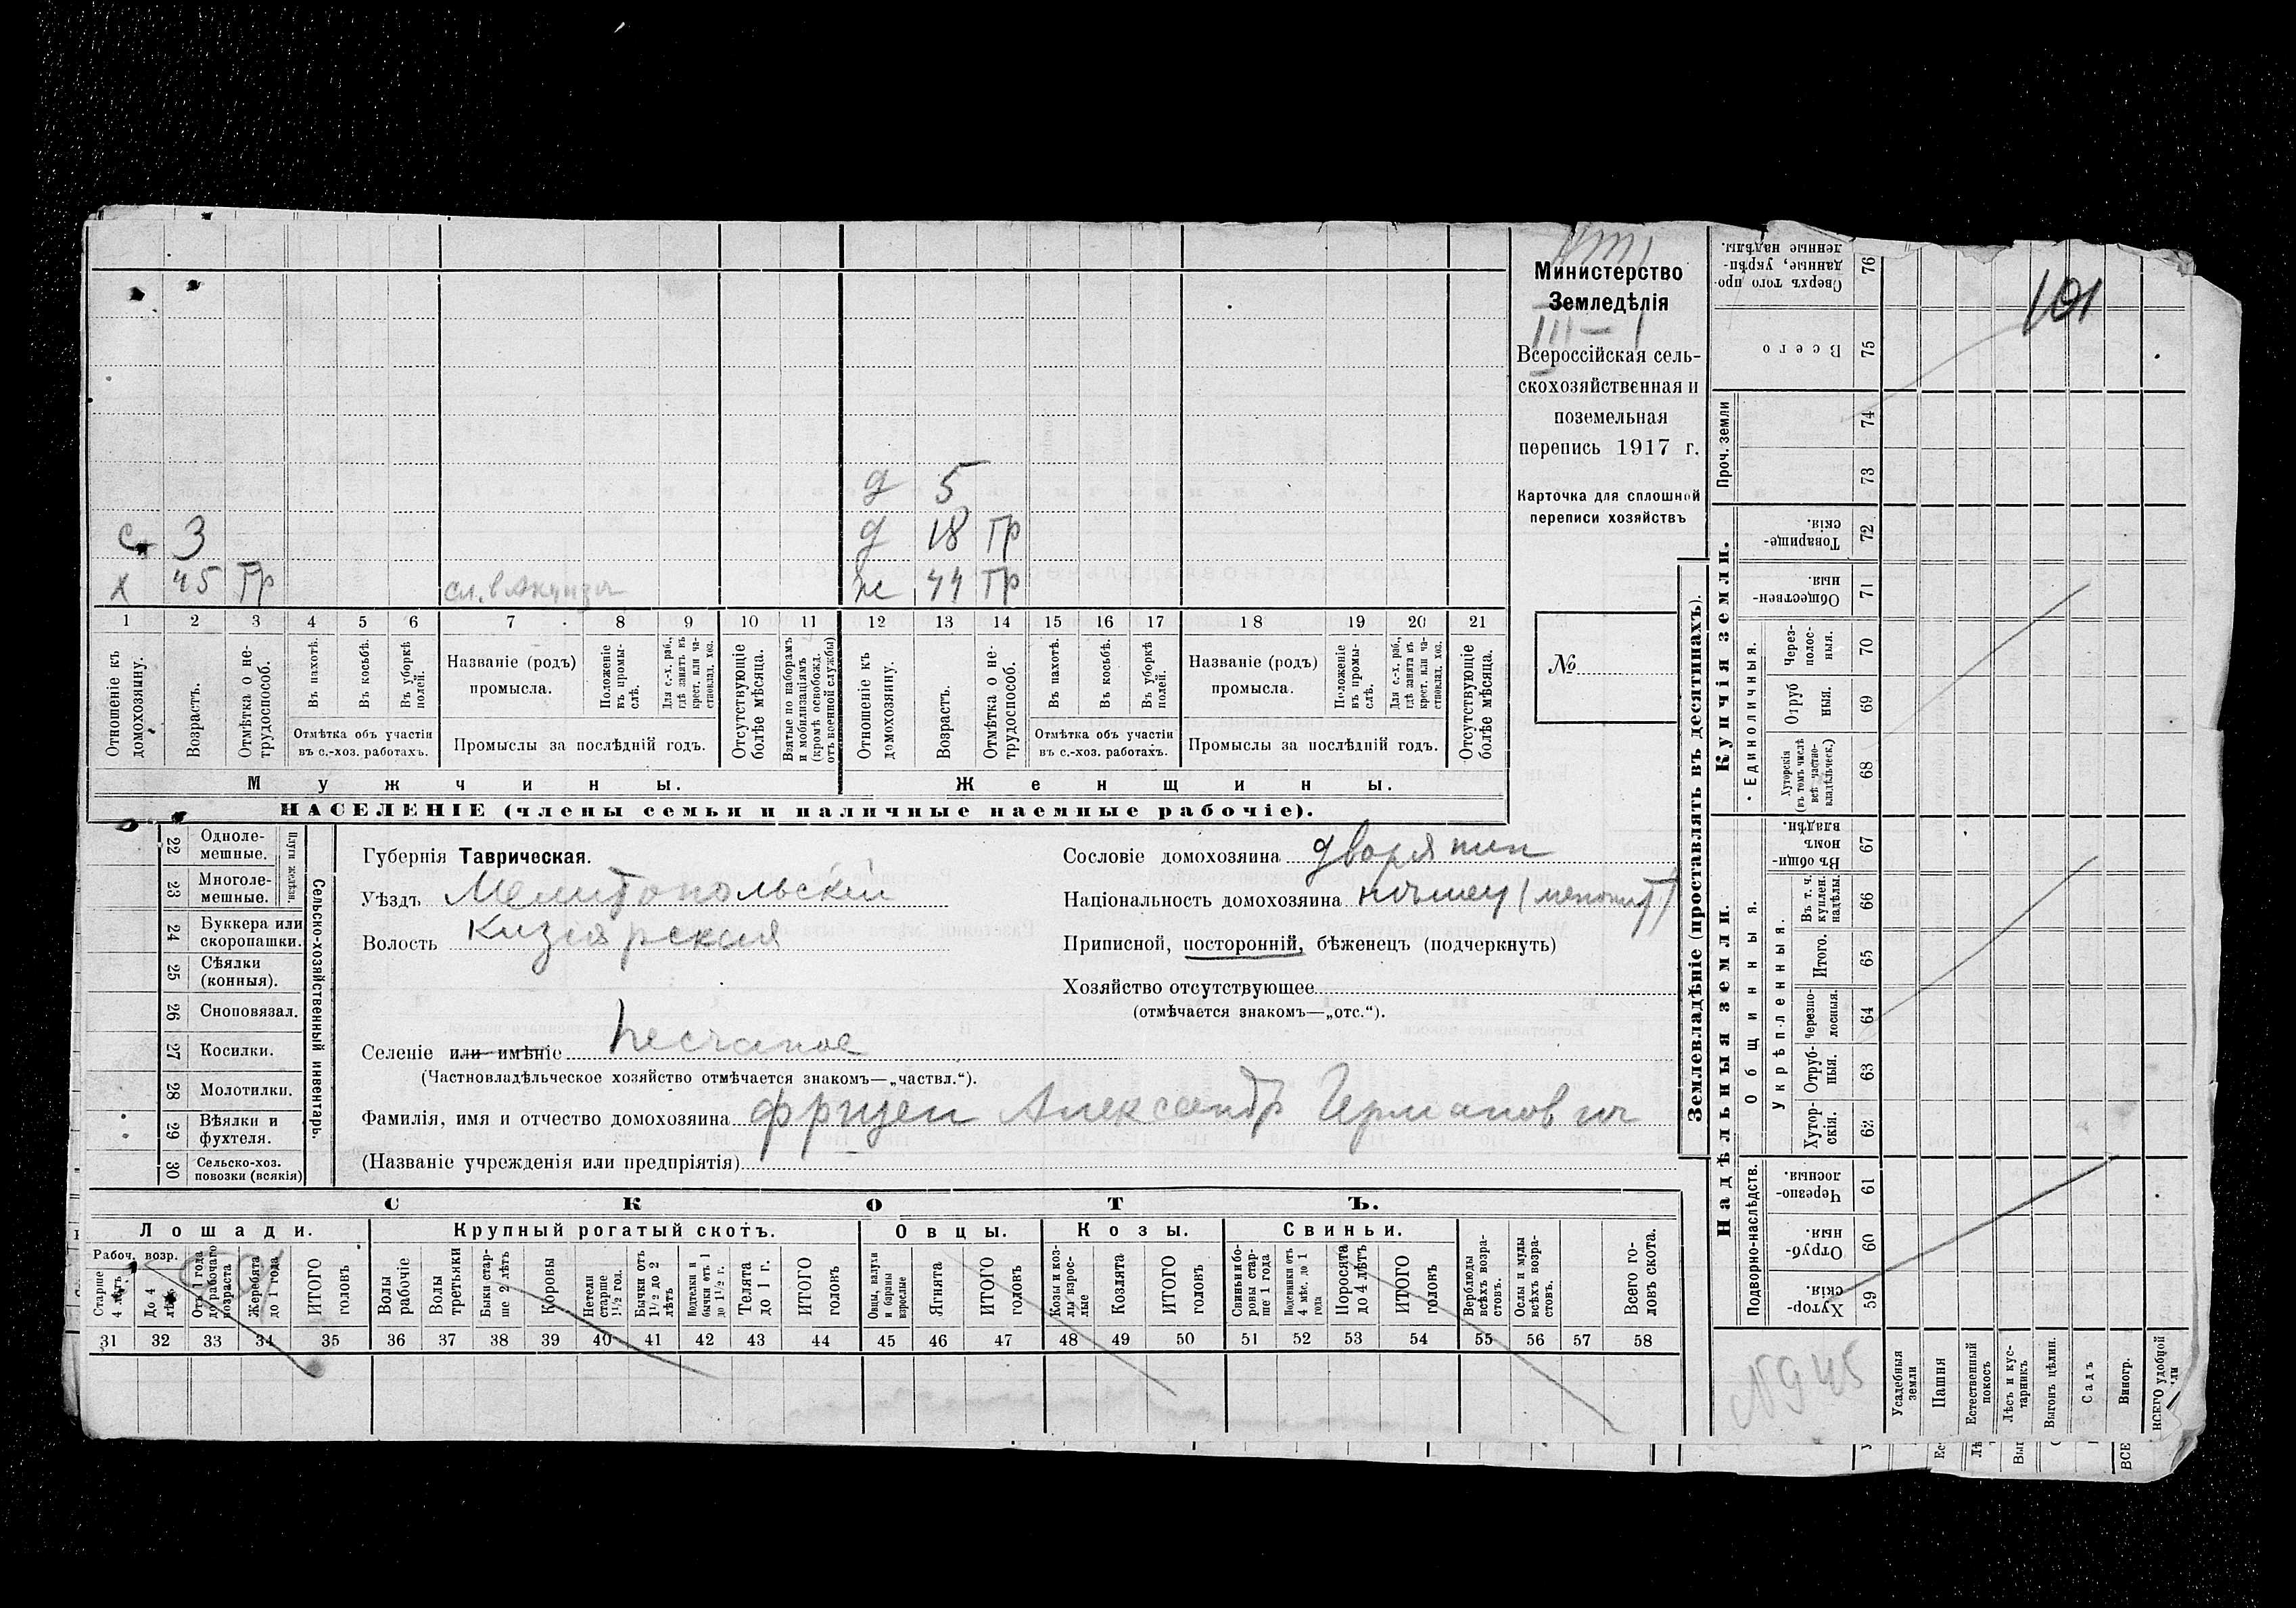 101
Министерство
Земледѣлія
III — I
Всероссійская сель-
скохозяйственная и
поземельная
перепись 1917 г.
Карточка для сплошной
переписи хозяйствъ
№
д 5
с 3 д 18 гр
х 45 гр сл. в ж 44 гр
1 2 3 4 5 6 7 8 9 10 11 12 13 14 15 16 17 18 19 20 21
Отношеніе къ домохозяину.
Возрастъ.
Отмѣтка о не-трудоспособ.
Въ пахотѣ.
Въ косьбѣ.
Въ уборкѣ полей.
Отмѣтка объ участіи въ с.-хоз. работахъ.
Названіе (родъ) промысла.
Положеніе въ промы-слѣ.
Для с.-х. раб., гдѣ занятъ въ крест. или ча-стновлад. хоз.
Промыслы за послѣдній годъ.
Отсутствующіе болѣе мѣсяца.
Взятые по наборамъ и мобилизаціямъ (кромѣ освобожд. отъ военной службы)
Отношеніе къ домохозяину.
Возрастъ.
Отмѣтка о не-трудоспособ.
Въ пахотѣ.
Въ косьбѣ.
Въ уборкѣ полей.
Отмѣтка объ участіи въ с.-хоз. работахъ.
Названіе (родъ) промысла.
Положеніе въ промы-слѣ.
Для с.-х. раб., гдѣ занята въ крест. или ча-стновлад. хоз.
Промыслы за послѣдній годъ.
Отсутствующіе болѣе мѣсяца.
Мужчины. Женщины.
НАСЕЛЕНІЕ (члены семьи и наличные наемные рабочіе).
Сельско-хозяйственный инвентарь.
Плуги желѣзн.
22 Одноле-мешные.
23 Многоле-мешные.
24 Буккера или скоропашки.
25 Сѣялки (конныя).
26 Сноповязал.
27 Косилки.
28 Молотилки.
29 Вѣялки и фухтеля.
30 Сельско-хоз. повозки (всякія)
Губернія Таврическая.
Уѣздъ Мелитопольскій
Волость Кизіярская
Сословіе домохозяина дворянин
Національность домохозяина немец (менонит)
Приписной, посторонній, бѣженецъ (подчеркнуть)
Хозяйство отсутствующее
(отмѣчается знакомъ—„отс.“).
Селеніе или имѣніе Песчаное
(Частновладѣльческое хозяйство отмѣчается знакомъ—„частвл.“).
Фамилія, имя и отчество домохозяина Фризен Александр Германович
(Названіе учрежденія или предпріятія)
СКОТЪ.
Лошади. Крупный рогатый скотъ. Овцы. Козы. Свиньи.
Рабоч. возр.
Старше 4 лѣтъ
До 4 лѣтъ
Отъ 1 года до рабочаго возраста
Жеребята до 1 года
ИТОГО головъ
Волы рабочіе
Волы третьяки
Быки стар-ше 2 лѣтъ
Коровы
Нетели старше 1½ год.
Бычки отъ 1½ до 2 лѣтъ
Подтелки и бычки отъ 1 до 1½ г.
Телята до 1 г.
ИТОГО головъ
Овцы, валухи и бараны взрослые
Ягнята
ИТОГО головъ
Козы и коз-лы взрос-лые
Козлята
ИТОГО головъ
Свиньи и бо-ровы стар-ше 1 года
Подсвинки отъ 4 мѣс. до 1 года
Поросята до 4 лѣтъ
ИТОГО головъ
Верблюды всѣхъ возра-стовъ.
Ослы и мулы всѣхъ возра-стовъ.
Всего го-ловъ скота.
31 32 33 34 35 36 37 38 39 40 41 42 43 44 45 46 47 48 49 50 51 52 53 54 55 56 57 58
Землевладѣніе (проставлять въ десятинахъ).
Надѣльныя земли. Купчія земли.
Подворно-наслѣдств.
Общинныя.
Укрѣпленныя.
Единоличныя.
Проч. земли
59 Хутор-скія
60 Отруб-ныя.
61 Черезпо-лосныя.
62 Хутор-скія.
63 Отруб-ныя.
64 Черезпо-лосныя.
65 Итого.
66 Въ т. ч. куплен. надѣлы.
67 Въ общи-номъ владѣн.
68 Хуторскія (въ томъ числѣ всѣ частно-владѣльческ.)
69 Отруб ныя.
70 Через-полос-ныя.
71 Обществен-ныя.
72 Товарище-скія.
73
74
75 Всего
76 Сверхъ того про-данные, укрѣп-ленные надѣлы.
N945
Усадебныя земли
Пашня
Естественный покосъ
Лѣсъ и кус-тарникъ
Выгонъ цѣлин.
Садъ
Виногр.
ВСЕГО удобной
ВСЕ